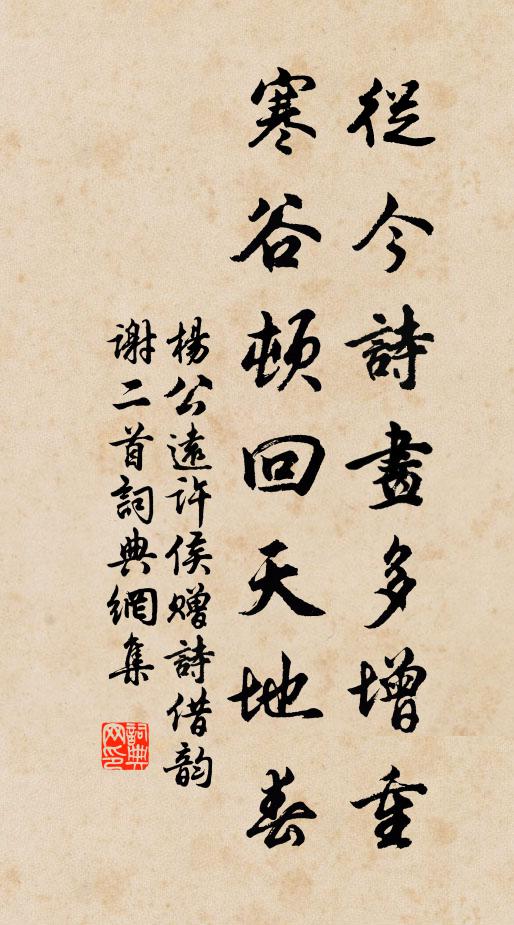 從今詩畫多增重
寒谷頓回天地春
楊公遠許侯贈詩借韵
謝二首詞典網集
詞典网印